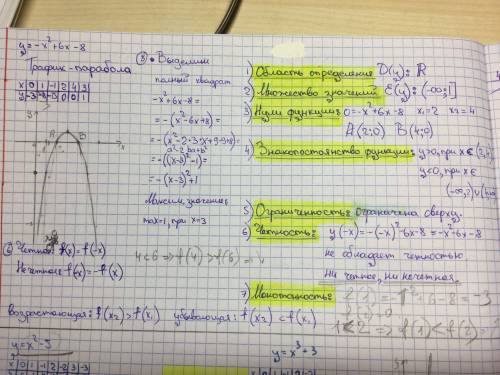 y=-x²+6x-8
График-парабола
x 0 1 -1 -2 4 3
⑧ • Выделим
полный квадрат
-x²+6x-8=
=-(x²-6x+8)=
=-(x²-2·3·x+9-9+8)=
=-((x-3)²-1)=
=-(x-3)²+1
Максим. значение:
max=1, при x=3
1) Область определения D(y): R
2) Множество значений E(y): (-∞;1]
3) Нули функции: 0=-x²+6x-8 x₁=2 x₂=4
A(2;0) B(4;0)
4) Знакопостоянство функции: y>0, при x∈
y<0, при x∈
5) Ограниченность: Ограничена сверху.
6) Четность: y(-x)=-(-x)²-6x-8=-x²-6x-8
не обладает четностью.
Ни четное, ни нечетная.
7) Монотонность:
⑥ Четная: f(x)=f(-x)
Нечетное: f(x)=-f(x)
возрастающая: f(x₂)>f(x₁) убывающая: f(x₂)<f(x₁)
y=x²-3
x 0 1 -1 2 -2 3 -3
y=x³+3